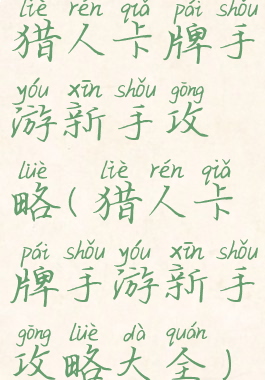 liè rén qiǎ pái shǒu
猎人卡牌手
yóu xīn shǒu gōng
游新手攻
lüè liè rén qiǎ
略(猎人卡
pái shǒu yóu xīn shǒu
牌手游新手
gōng lüè dà quán
攻略大全)